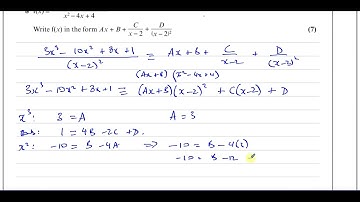 x² − 4x + 4
Write f(x) in the form Ax + B + C/(x − 2) + D/(x − 2)² (7)
3x³ − 10x² + 3x + 1 / (x−2)² ≡ Ax + B + C/(x−2) + D/(x−2)²
(Ax+B)(x²−4x+4)
3x³ − 10x² + 3x + 1 ≡ (Ax+B)(x−2)² + C(x−2) + D
x³: 3 = A A = 3
1 = 4B − 2C + D.
x²: −10 = B − 4A ⇒ −10 = B − 4(3)
−10 = B − 12